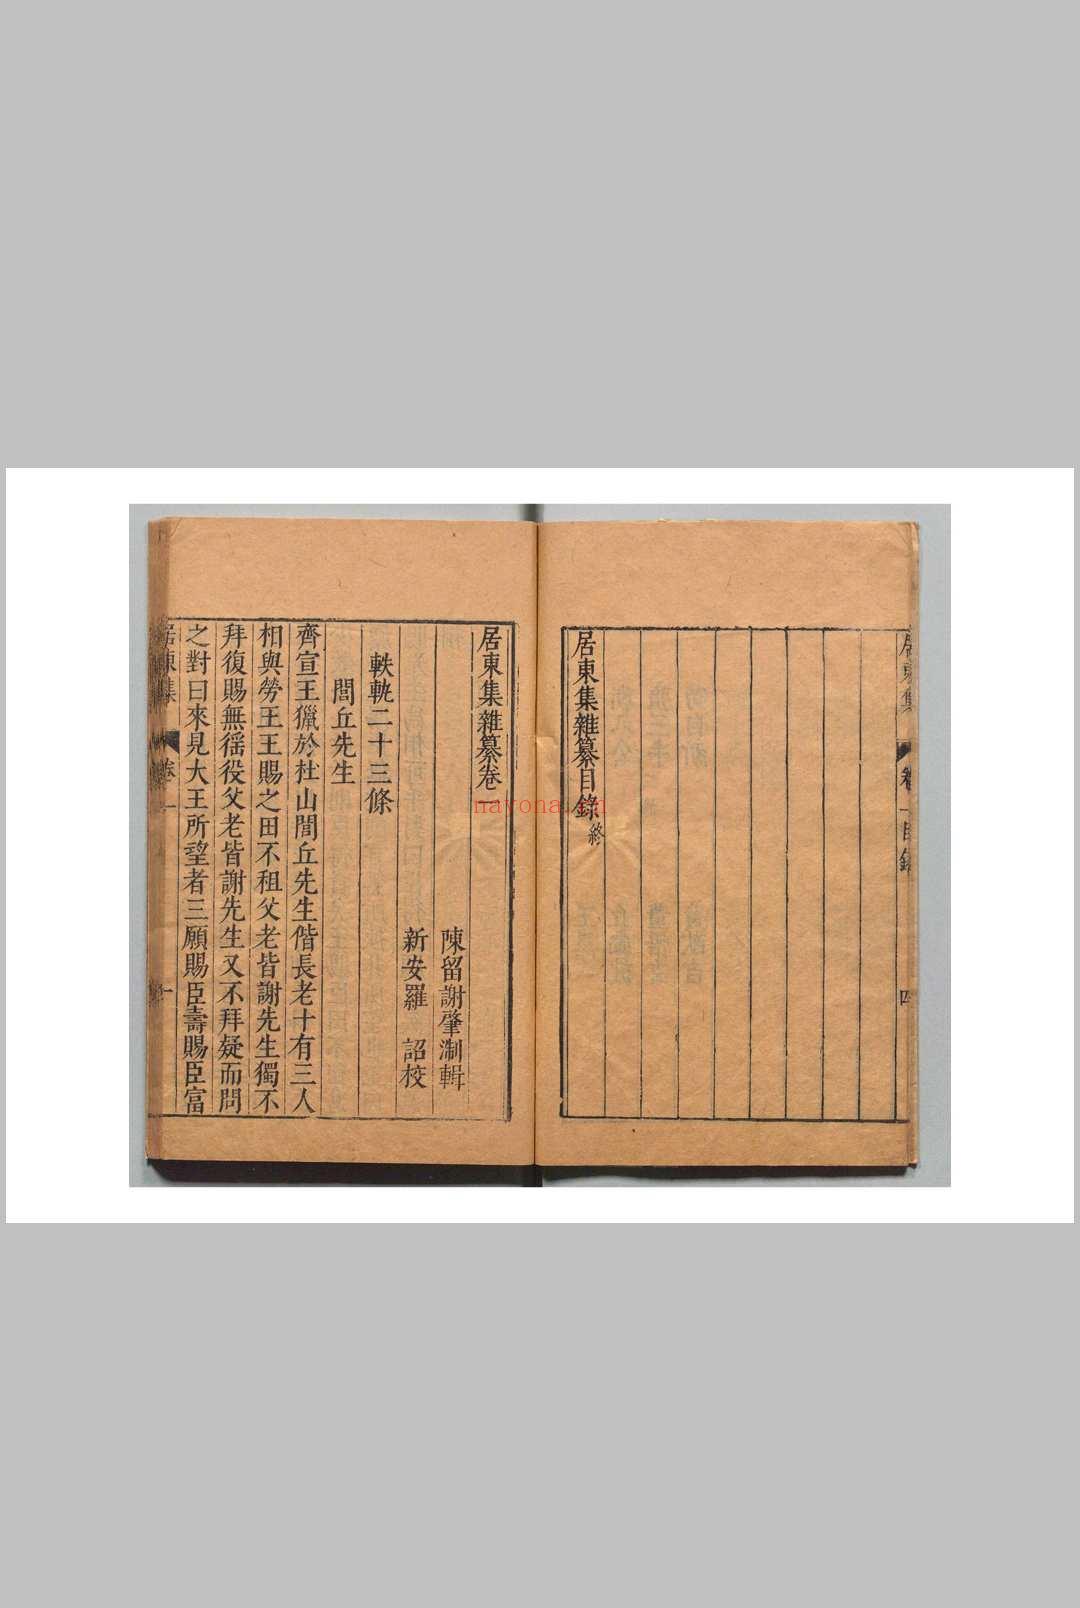 居東集雜纂目錄終
居東集 卷一目錄 四
居東集雜纂卷一
陳留謝肇淛輯
新安羅 詔校
軼軌二十三條
閭丘先生
齊宣王獵於杜山閭丘先生偕長老十有三人
相與勞王王賜之田不租父老皆謝先生獨不
拜復賜無徭役父老皆謝先生又不拜疑而問
之對曰來見大王所望者三願賜臣壽賜臣富
居東集 卷一 一
nayona.cn